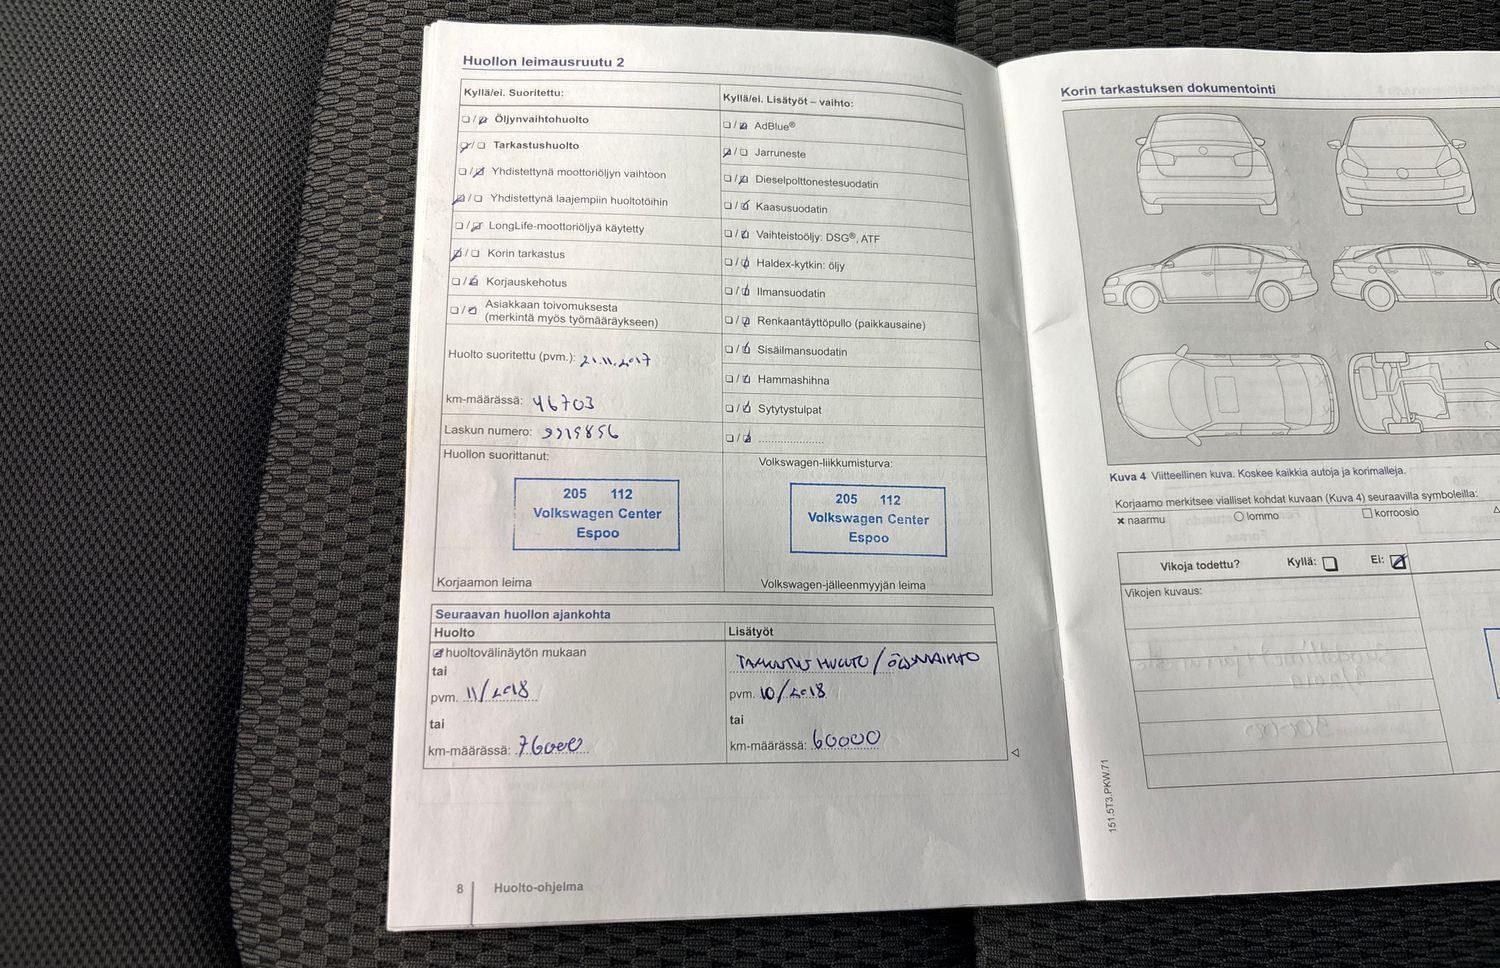 Huollon leimausruutu 2
Kyllä/ei. Suoritettu:
☐ / ☑ Öljynvaihtohuolto
☑ / ☐ Tarkastushuolto
☐ / ☑ Yhdistettynä moottoriöljyn vaihtoon
☑ / ☐ Yhdistettynä laajempiin huoltotöihin
☐ / ☑ LongLife-moottoriöljyä käytetty
☑ / ☐ Korin tarkastus
☐ / ☑ Korjauskehotus
☐ / ☑ Asiakkaan toivomuksesta
(merkintä myös työmääräykseen)
Huolto suoritettu (pvm.): 21.11.2017
km-määrässä: 46703
Laskun numero:
Huollon suorittanut:
205 112
Volkswagen Center
Espoo
Korjaamon leima
Kyllä/ei. Lisätyöt – vaihto:
☐ / ☑ AdBlue®
☑ / ☐ Jarruneste
☐ / ☑ Dieselpolttonestesuodatin
☐ / ☑ Kaasusuodatin
☐ / ☑ Vaihteistoöljy: DSG®, ATF
☐ / ☑ Haldex-kytkin: öljy
☐ / ☑ Ilmansuodatin
☐ / ☑ Renkaantäyttöpullo (paikkausaine)
☐ / ☑ Sisäilmansuodatin
☐ / ☑ Hammashihna
☐ / ☑ Sytytystulpat
☐ / ☑ ......................
Volkswagen-liikkumisturva:
205 112
Volkswagen Center
Espoo
Volkswagen-jälleenmyyjän leima
Seuraavan huollon ajankohta
Huolto
☑ huoltovälinäytön mukaan
tai
pvm. 11/2018
tai
km-määrässä: 76000
Lisätyöt
pvm. 10/2018
tai
km-määrässä: 60000
8 Huolto-ohjelma
Korin tarkastuksen dokumentointi
Kuva 4 Viitteellinen kuva. Koskee kaikkia autoja ja korimalleja.
Korjaamo merkitsee vialliset kohdat kuvaan (Kuva 4) seuraavilla symboleilla:
× naarmu ○ lommo □ korroosio
Vikoja todettu? Kyllä: ☐ Ei: ☑
Vikojen kuvaus:
151.5T3.PKW.71